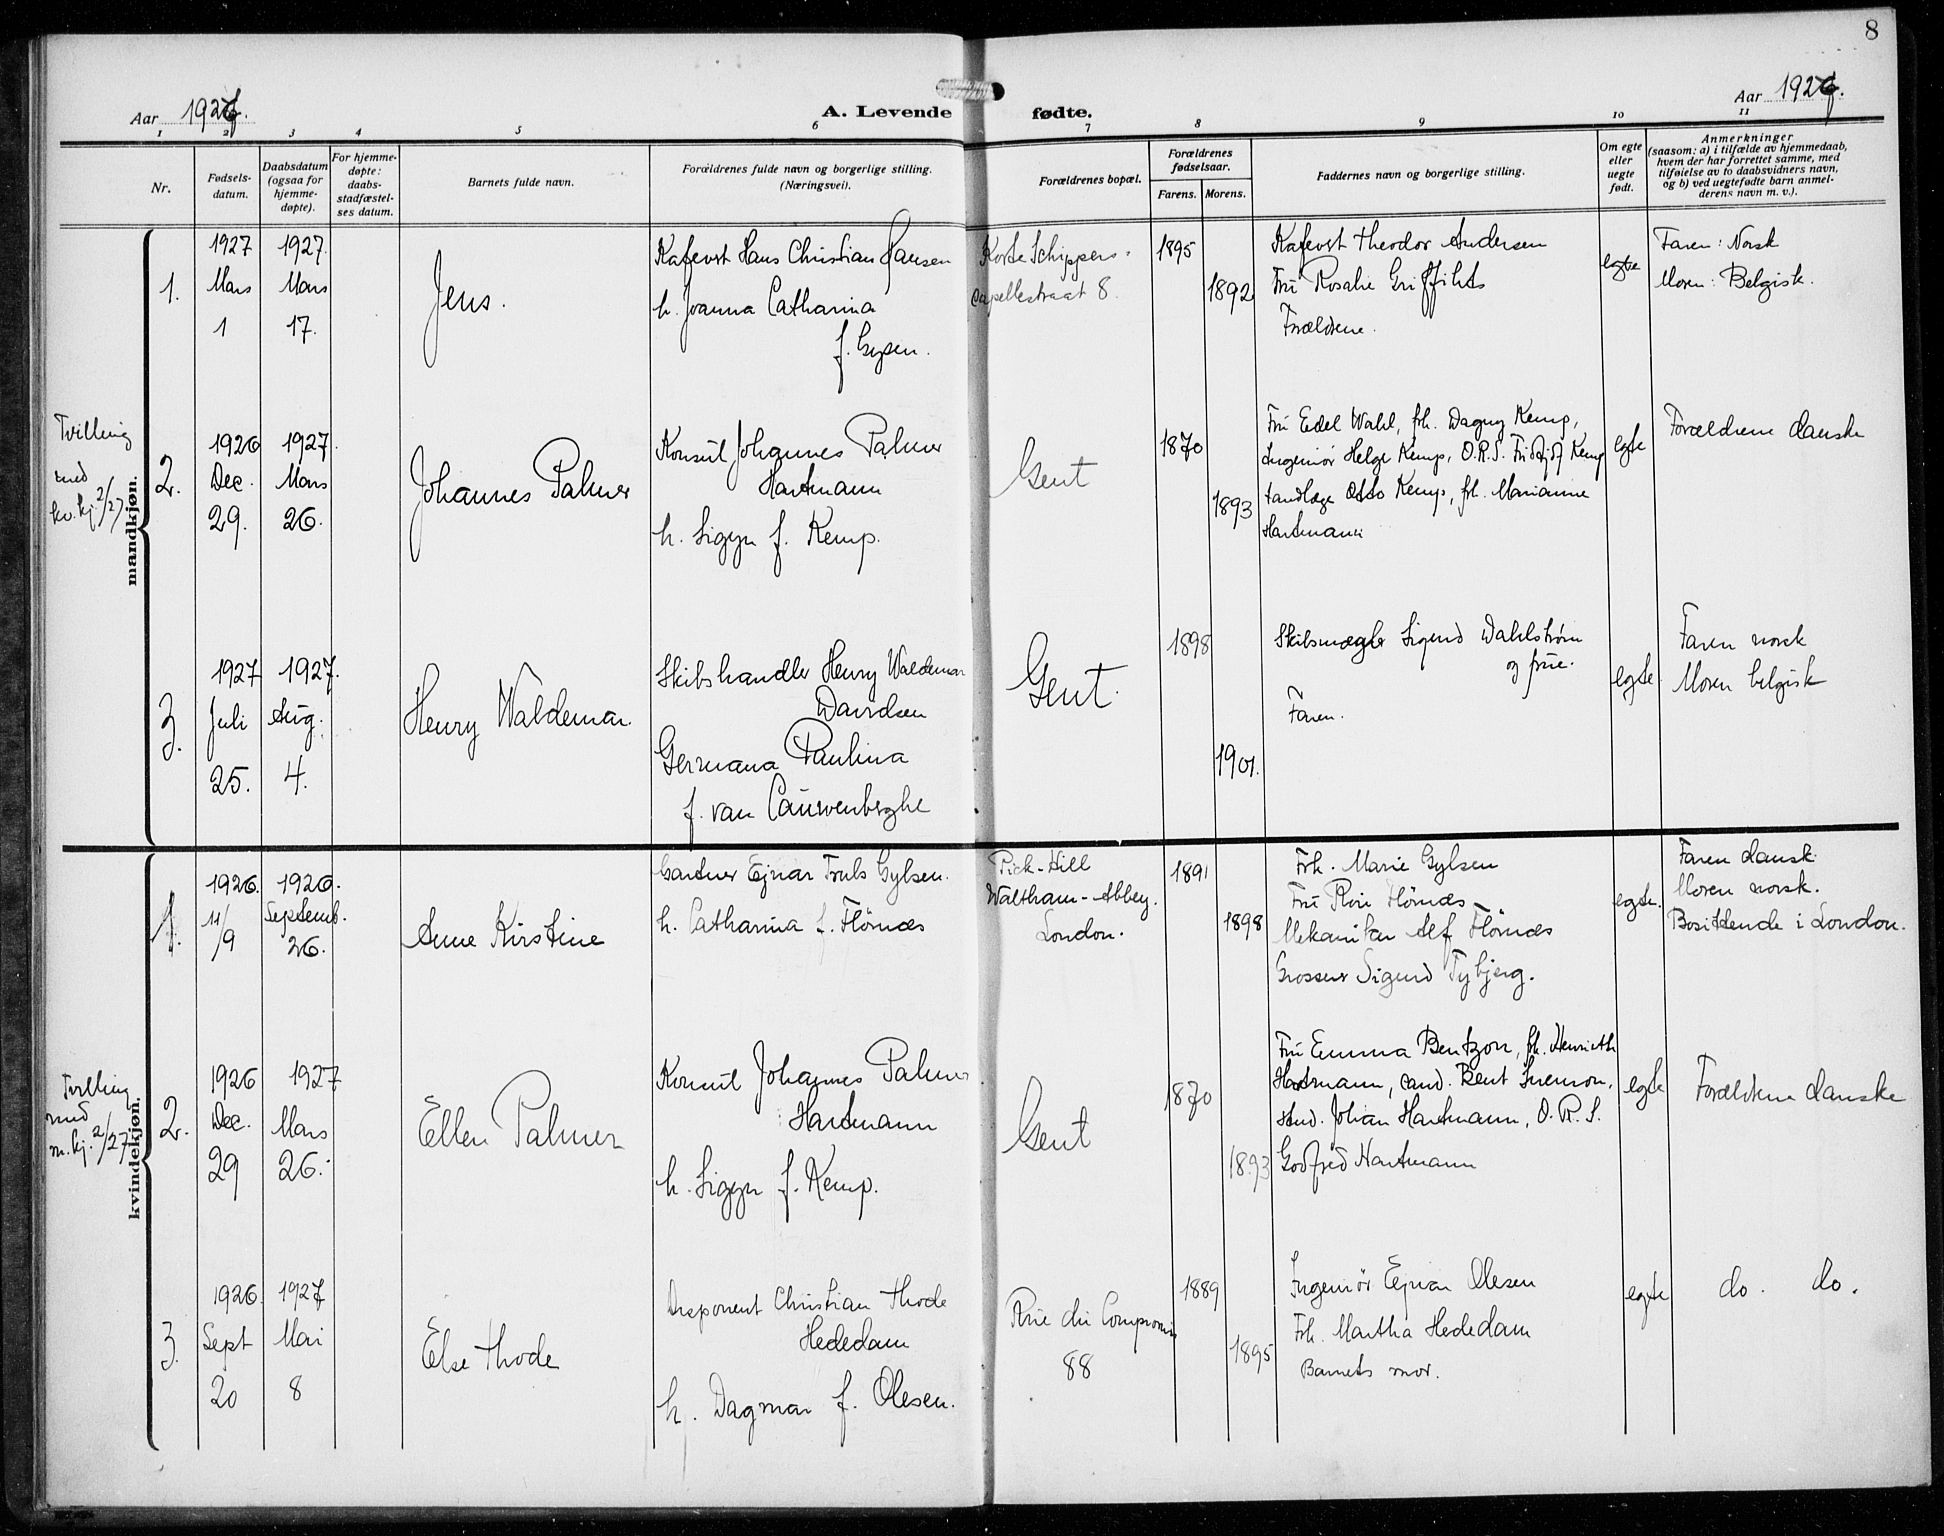 8
Aar 1927.
A. Levende fødte.
Aar 1927.
1 2 3 4 5 6 7 8 9 10 11
Nr.
Fødsels-
datum.
Daabsdatum
(ogsaa for
hjemme-
døpte).
For hjemme-
døpte:
daabs-
stadfæstel-
ses datum.
Barnets fulde navn.
Forældrenes fulde navn og borgerlige stilling.
(Næringsvei).
Forældrenes bopæl.
Forældrenes
fødselsaar.
Farens. Morens.
Faddernes navn og borgerlige stilling.
Om egte
eller
uegte
født.
Anmerkninger
(saasom: a) i tilfælde av hjemmedaab,
hvem der har forrettet samme, med
tilføielse av to daabsvidners navn,
og b) ved uegtefødte barn anmel-
derens navn m. v.).
mandkjøn.
1.
1927
Mars
1
1927.
Mars
17.
Jens.
Kafevrt Hans Christian Hansen
h. Joanna Catharina
f. Gysen.
Korte Schippers-
capellestraat 8.
1895
1892
Kafevrt Theodor Andersen
Fru Rosalie Griffihts
Forældrene.
egte
Faren: Norsk
Moren: Belgisk.
Tvilling
med
kv. kj. 2/27
2.
1926
Dec.
29.
1927.
Mars
26.
Johannes Palmer
Konsul Johannes Palmer
Hartmann
h. Sigyn f. Kemp.
Gent
1870
1893
Fru Edel Wahl, frk. Dagny Kemp,
Ingeniør Helge Kemp, O.R.S. Fridtjof Kemp
tandlæge Otto Kemp, frk. Marianne
Hartmann
egte
Forældrene danske
3.
1927
Juli
25.
1927.
Aug.
4.
Henry Waldemar.
Skibshandler Henry Waldemar
Davidsen
Germana Paulina
f. van Cauwenberghe
Gent.
1898
1901.
Skibsmægler Sigurd Dahlstrøm
og frue.
Faren.
egte.
Faren norsk
Moren belgisk
kvindekjøn.
1.
1926.
11/9
1926.
Septemb.
26.
Anne Kirstine
Gartner Ejnar Truls Gylsen.
h. Catharina f. Flörnæs
Pick-Hill
Waltham-Abbey.
London.
1891
1898
Frk. Marie Gylsen
Fru Flörnæs
Mekaniker Alf Flörnæs
Grosserer Sigurd Tybjerg.
egte.
Faren dansk.
Moren norsk.
Bosittende i London.
Tvilling
med
m. kj. 2/27
2.
1926
Dec.
29
1927
Mars
26.
Ellen Palmer
Konsul Johannes Palmer
Hartmann
h. Sigyn f. Kemp.
Gent
1870
1893
Fru Emma Bentzon, frk. Henriette
Hartmann, cand. Bent Svenson,
stud. Johan Hartmann, O. R. S.
Godfred Hartmann
egte
Forældrene danske
3.
1926.
Sept
20
1927
Mai
8
Else Thode
Disponent Christian Thode
Hededam
h. Dagmar f. Olesen.
Rue du Compromis
88
1889
1895
Ingeniør Ejnar Olesen
Frk. Martha Hededam
Barnets mor.
egte
do. do.